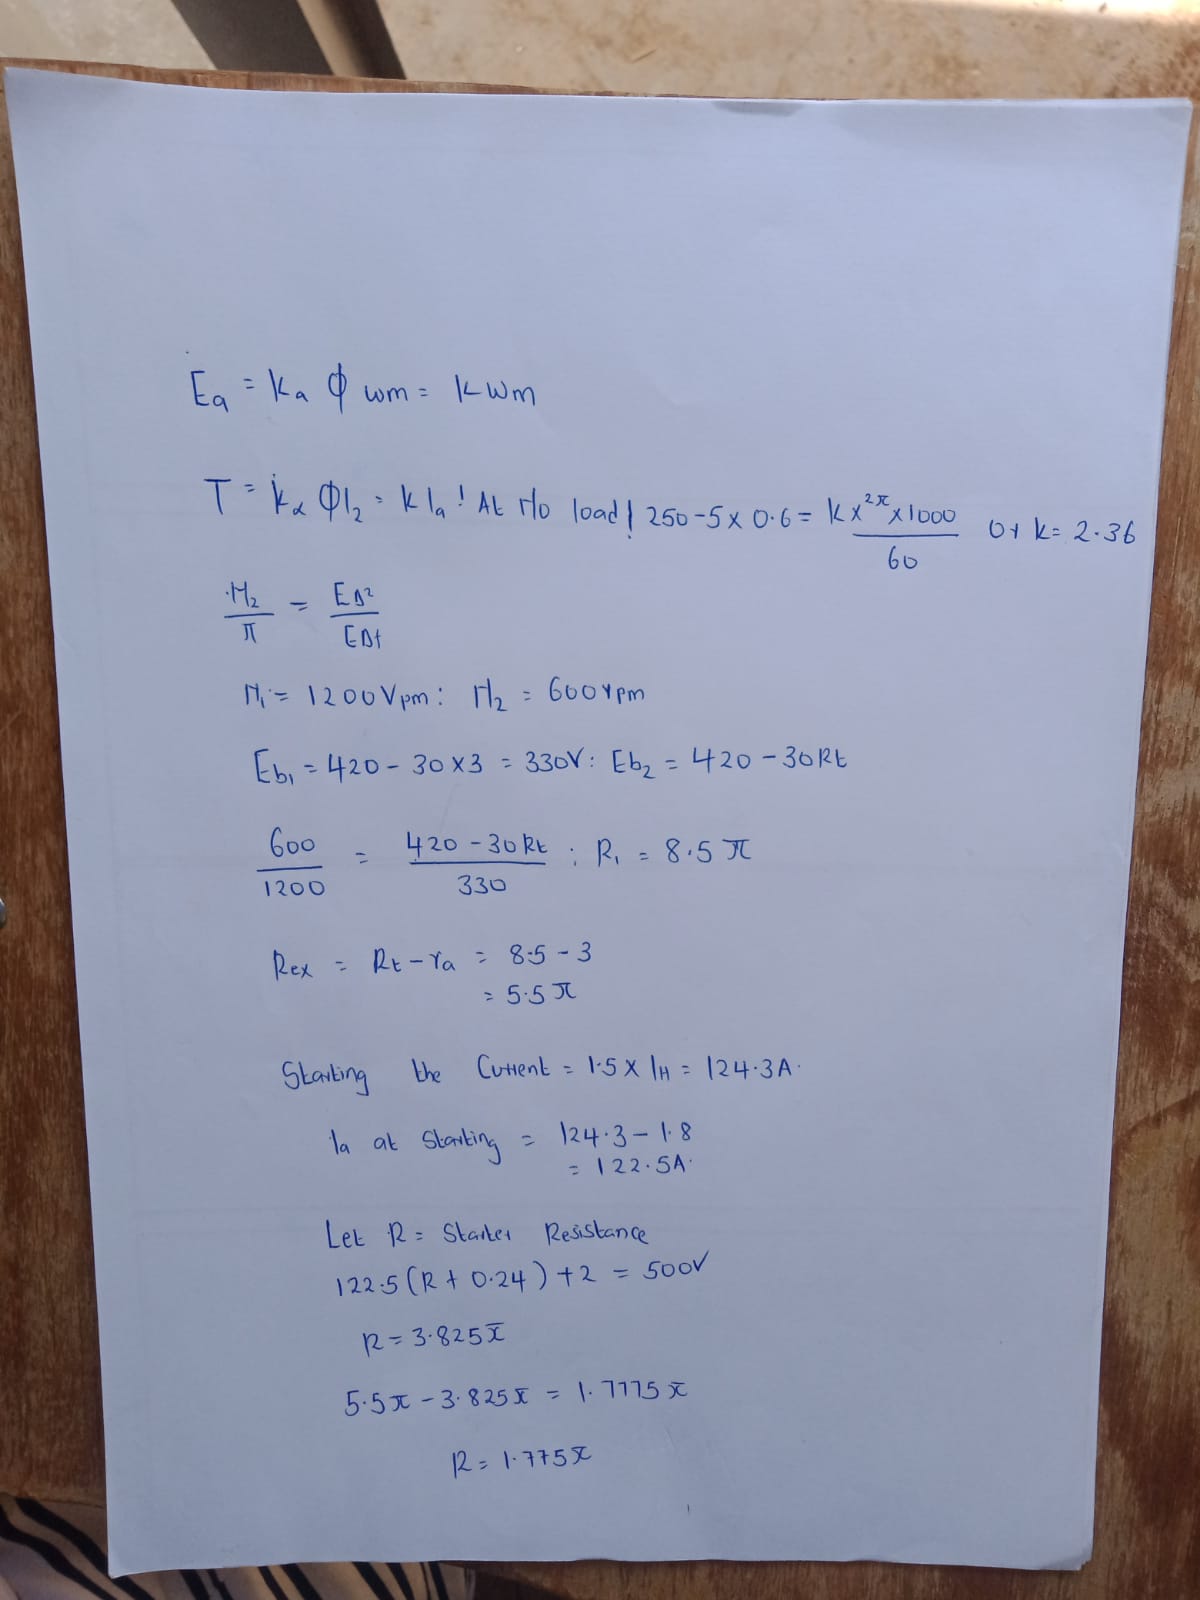 Ea = Ka Φ wm = KWm
T = kα ΦI2 = kIa! At No load! 250-5 x 0.6 = K x 2π x 1000 / 60 Or k = 2.36
N2 / π = EΔ2 / EΔt
N1 = 1200Vpm: N2 = 600rpm
Eb1 = 420 - 30 x 3 = 330V: Eb2 = 420 - 30Rt
600 / 1200 = 420 - 30Rt / 330 ; R1 = 8.5 π
Rex = Rt - ra = 8.5 - 3
= 5.5 π
Starting the Current = 1.5 x IH = 124.3A.
Ia at Starting = 124.3 - 1.8
= 122.5A.
Let R = Starter Resistance
122.5 (R + 0.24) + 2 = 500V
R = 3.825π
5.5π - 3.825π = 1.7775π
R = 1.775π